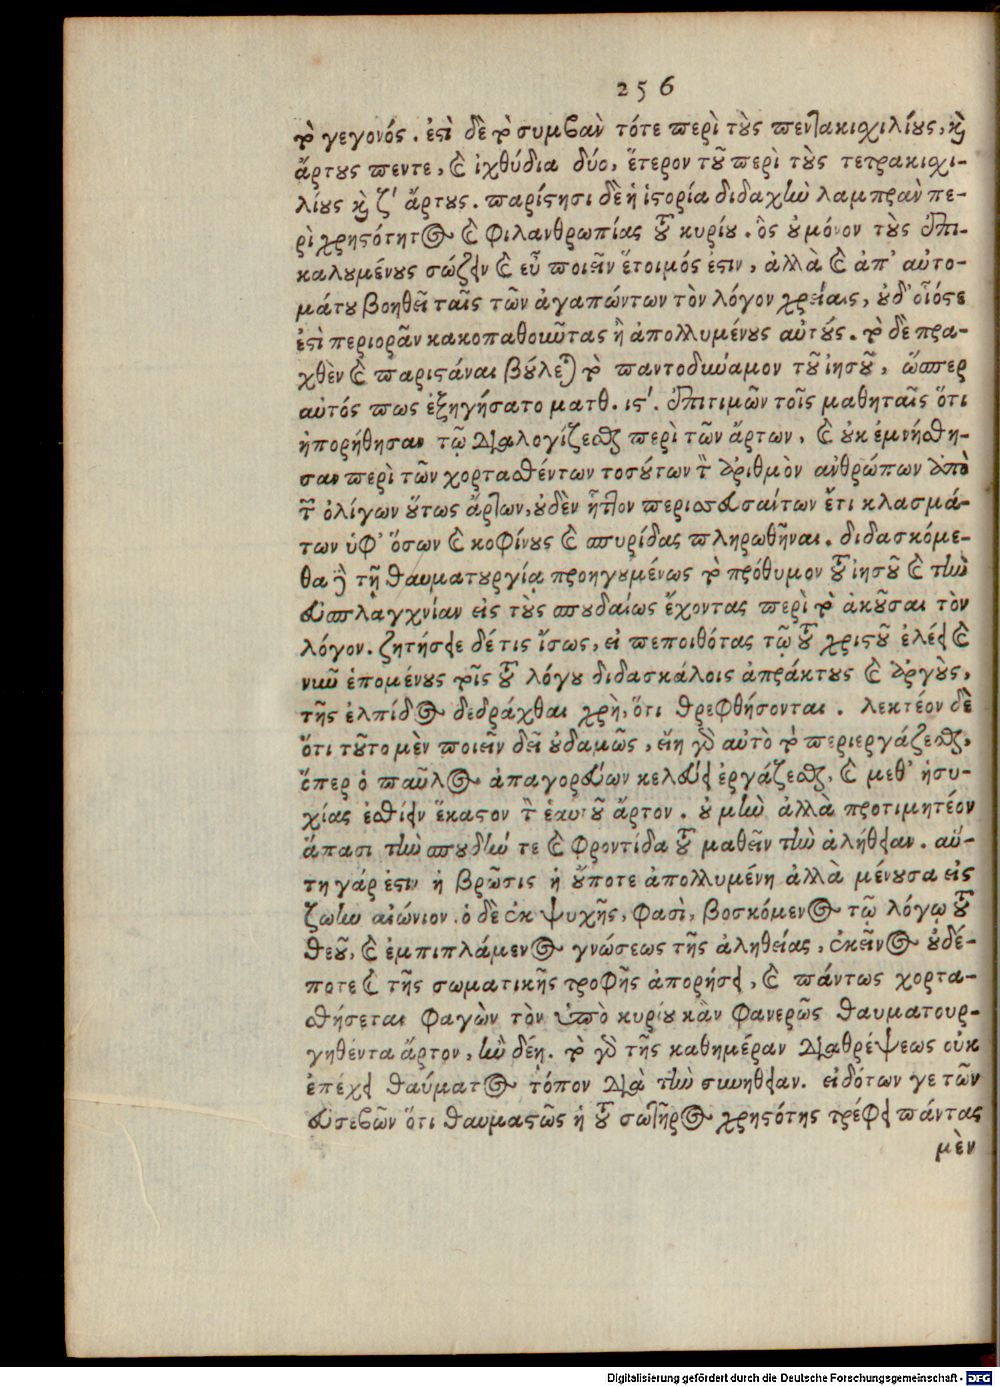 256
τὸ γεγονός. ἐστὶ δὲ τὸ συμβὰν τότε περὶ τοὺς πεντακισχιλίους, καὶ
ἄρτους πεντε, καὶ ἰχθύδια δύο, ἕτερον τοῦ περὶ τοὺς τετρακισχι-
λίους καὶ ζʹ ἄρτους. παρίστησι δὲ ἡ ἱστορία διδαχὴν λαμπρὰν πε-
ρὶ χρηστότητος καὶ φιλανθρωπίας τοῦ κυρίου. ὃς οὐ μόνον τοὺς ἐπι-
καλουμένους σώζειν καὶ εὖ ποιεῖν ἕτοιμός ἐστιν, ἀλλὰ καὶ ἀπ' αὐτο-
μάτου βοηθεῖ ταῖς τῶν ἀγαπώντων τὸν λόγον χρείαις, οὐδ' οἷός τε
ἐστὶ περιορᾶν κακοπαθοῦντας ἢ ἀπολλυμένους αὐτούς. τὸ δὲ πρα-
χθὲν καὶ παριστάναι βούλεται τὸ παντοδύναμον τοῦ ἰησοῦ, ὥσπερ
αὐτός πως ἐξηγήσατο ματθ. ιςʹ. ἐπιτιμῶν τοῖς μαθηταῖς ὅτι
ἠπορήθησαν τῷ διαλογίζεσθαι περὶ τῶν ἄρτων, καὶ οὐκ ἐμνήσθη-
σαν περὶ τῶν χορτασθέντων τοσούτων τὸν ἀριθμὸν ἀνθρώπων ἀπὸ
τῶν ὀλίγων οὕτως ἄρτων, οὐδὲν ἧττον περισσευσάντων ἔτι κλασμά-
των ὑφ' ὅσων καὶ κοφίνους καὶ σπυρίδας πληρωθῆναι. διδασκόμε-
θα δὲ τῇ θαυματουργίᾳ προηγουμένως τὸ πρόθυμον τοῦ ἰησοῦ καὶ τὴν
εὐσπλαγχνίαν εἰς τοὺς σπουδαίως ἔχοντας περὶ τὸ ἀκοῦσαι τὸν
λόγον. ζητήσειε δέ τις ἴσως, εἰ πεποιθότας τῷ τοῦ χριστοῦ ἐλέει καὶ
νῦν ἑπομένους τοῖς τοῦ λόγου διδασκάλοις ἀπράκτους καὶ ἀργοὺς,
τῆς ἐλπίδος δεδράχθαι χρὴ, ὅτι θρεφθήσονται. λεκτέον δὲ
ὅτι τοῦτο μὲν ποιεῖν δεῖ οὐδαμῶς, εἴη γὰρ αὐτὸ τὸ περιεργάζεσθαι,
ὅπερ ὁ παῦλος ἀπαγορεύων κελεύει ἐργάζεσθαι, καὶ μεθ' ἡσυ-
χίας ἐσθίειν ἕκαστον τὸν ἑαυτοῦ ἄρτον. οὐ μὴν ἀλλὰ προτιμητέον
ἅπασι τὴν σπουδήν τε καὶ φροντίδα τοῦ μαθεῖν τὴν ἀλήθειαν. αὕ-
τη γάρ ἐστιν ἡ βρῶσις ἡ οὔποτε ἀπολλυμένη ἀλλὰ μένουσα εἰς
ζωὴν αἰώνιον. ὁ δὲ ἐκ ψυχῆς, φασὶ, βοσκόμενος τῷ λόγῳ τοῦ
θεοῦ, καὶ ἐμπιπλάμενος γνώσεως τῆς ἀληθείας, ἐκεῖνος οὐδέ-
ποτε καὶ τῆς σωματικῆς τροφῆς ἀπορήσει, καὶ πάντως χορτα-
σθήσεται φαγὼν τὸν ὑπὸ κυρίου κἂν φανερῶς θαυματουρ-
γηθέντα ἄρτον, ἢν δέῃ. τὸ γὰρ τῆς καθημέραν διαθρέψεως οὐκ
ἐπέχει θαύματος τόπον διὰ τὴν συνήθειαν. εἰδότων γε τῶν
εὐσεβῶν ὅτι θαυμαστῶς ἡ τοῦ σωτῆρος χρηστότης τρέφει πάντας
μὲν
Digitalisierung gefördert durch die Deutsche Forschungsgemeinschaft - DFG